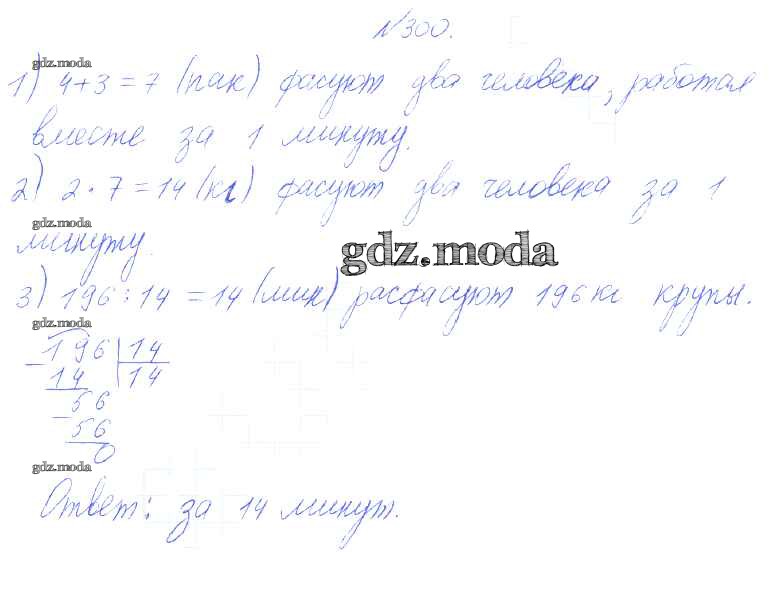 №300.
gdz.moda
1) 4+3=7 (пак) фасуют два человека, работая
вместе за 1 минуту.
2) 2·7=14 (кг) фасуют два человека за 1
gdz.moda
минуту.
gdz.moda
3) 196:14=14 (мин) расфасуют 196 кг крупы.
gdz.moda
- 196 | 14
14 | 14
- 56
56
0
gdz.moda
Ответ: за 14 минут.